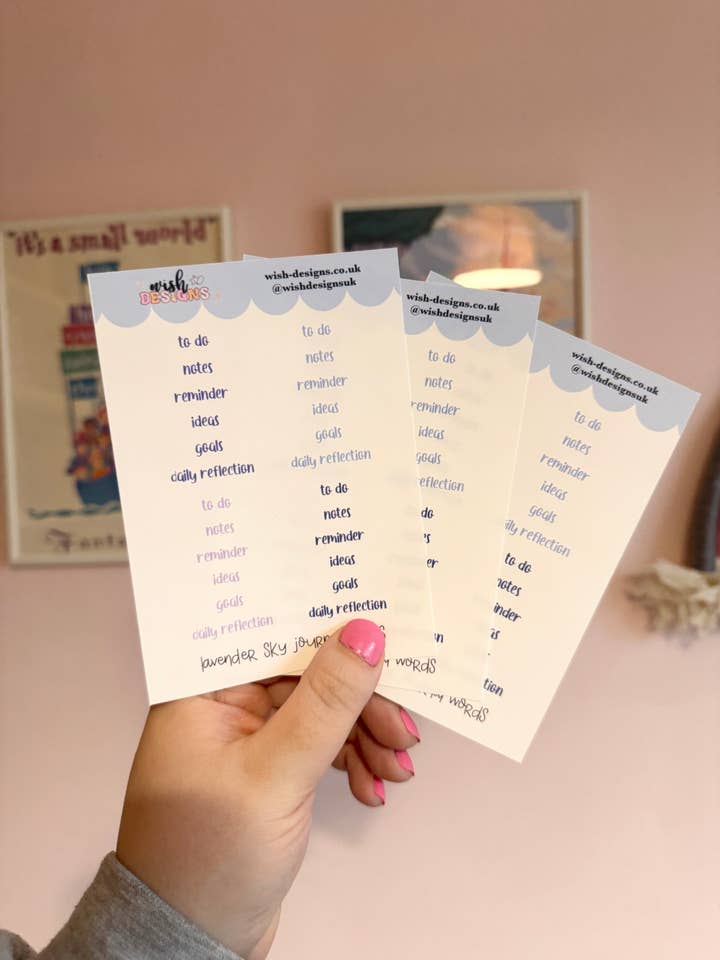 "it's a small world"
wish
DESIGNS
wish-designs.co.uk
@wishdesignsuk
to do
notes
reminder
ideas
goals
daily reflection
to do
notes
reminder
ideas
goals
daily reflection
to do
notes
reminder
ideas
goals
daily reflection
to do
notes
reminder
ideas
goals
daily reflection
lavender sky
wish-designs.co.uk
@wishdesignsuk
to do
notes
reminder
ideas
goals
reflection
words
wish-designs.co.uk
@wishdesignsuk
to do
notes
reminder
ideas
goals
reflection
to do
notes
words